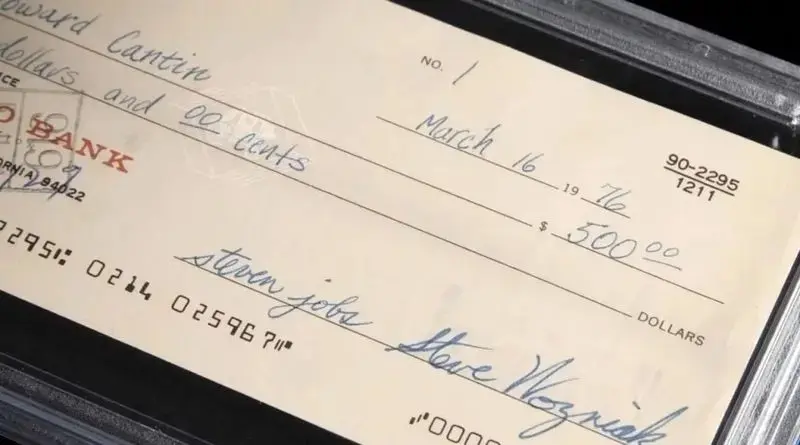 NO. 1
oward Cantin
March 16 19 76
90-2295
1211
dollars and 00 cents
$ 500 00
DOLLARS
O BANK
ORNIA 94022
2295 0214 025967
steven jobs Steve Wozniak
0000